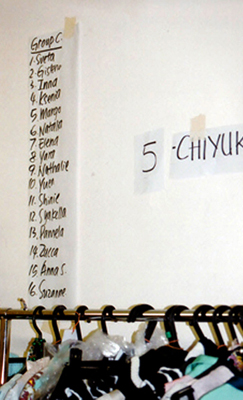 Group C.
1. Sveta
2 Gisten
3 Inna
4. Ksenia
5 Mango
6. Natalia
7. Elena
8 Vara
9 Nathalie
10. Yuen
11. Shinie
12. Shakella
13. Pamela
14. Zucca
15. Anna S.
16. Suzanne
5 -CHIYUK